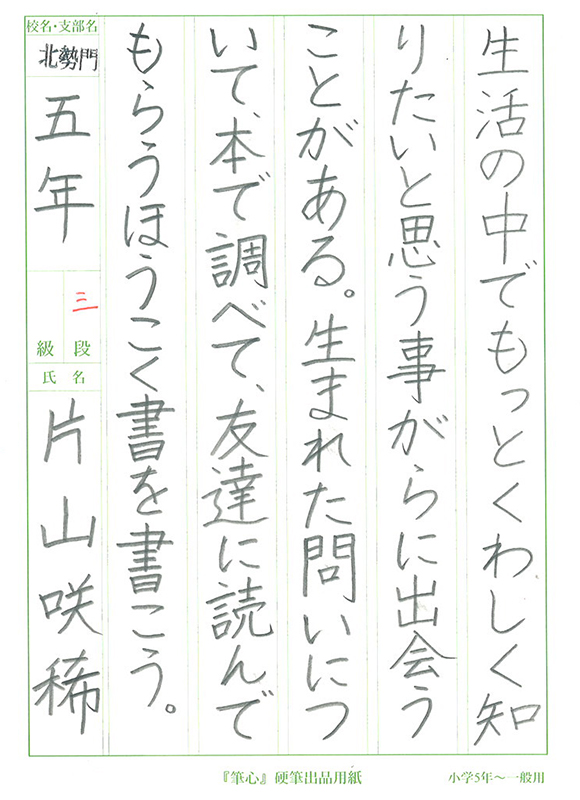 生活の中でもっとくわしく知
りたいと思う事がらに出会う
ことがある。生まれた問いにつ
いて、本で調べて、友達に読んで
もらうほうこく書を書こう。
校名・支部名
北勢門
五年
三
級 段
氏 名
片山咲稀
『筆心』硬筆出品用紙
小学5年～一般用